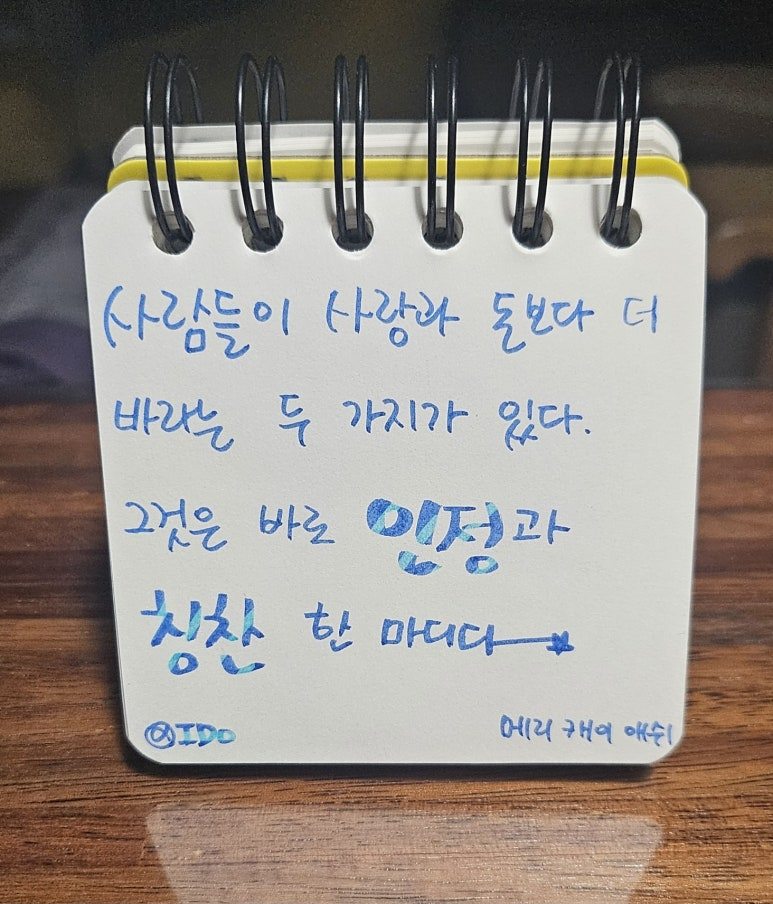 사람들이 사랑과 돈보다 더
바라는 두 가지가 있다.
그것은 바로 인정과
칭찬 한 마디다
IDo
메리 케이 애쉬